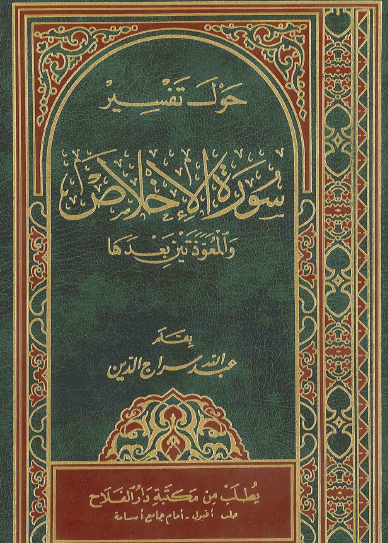 حَولَ تَفْسِيْر
سُورَة الإِخْلَاص
وَالمُعَوّذَتَيْن بَعْدَهَا
بِقَلَم
عبد الله سراج الدين
يُطلَبُ مِن مَكتَبَة دَارُ الفَلَاح
حلب أقيول - أمام جامع أسامة